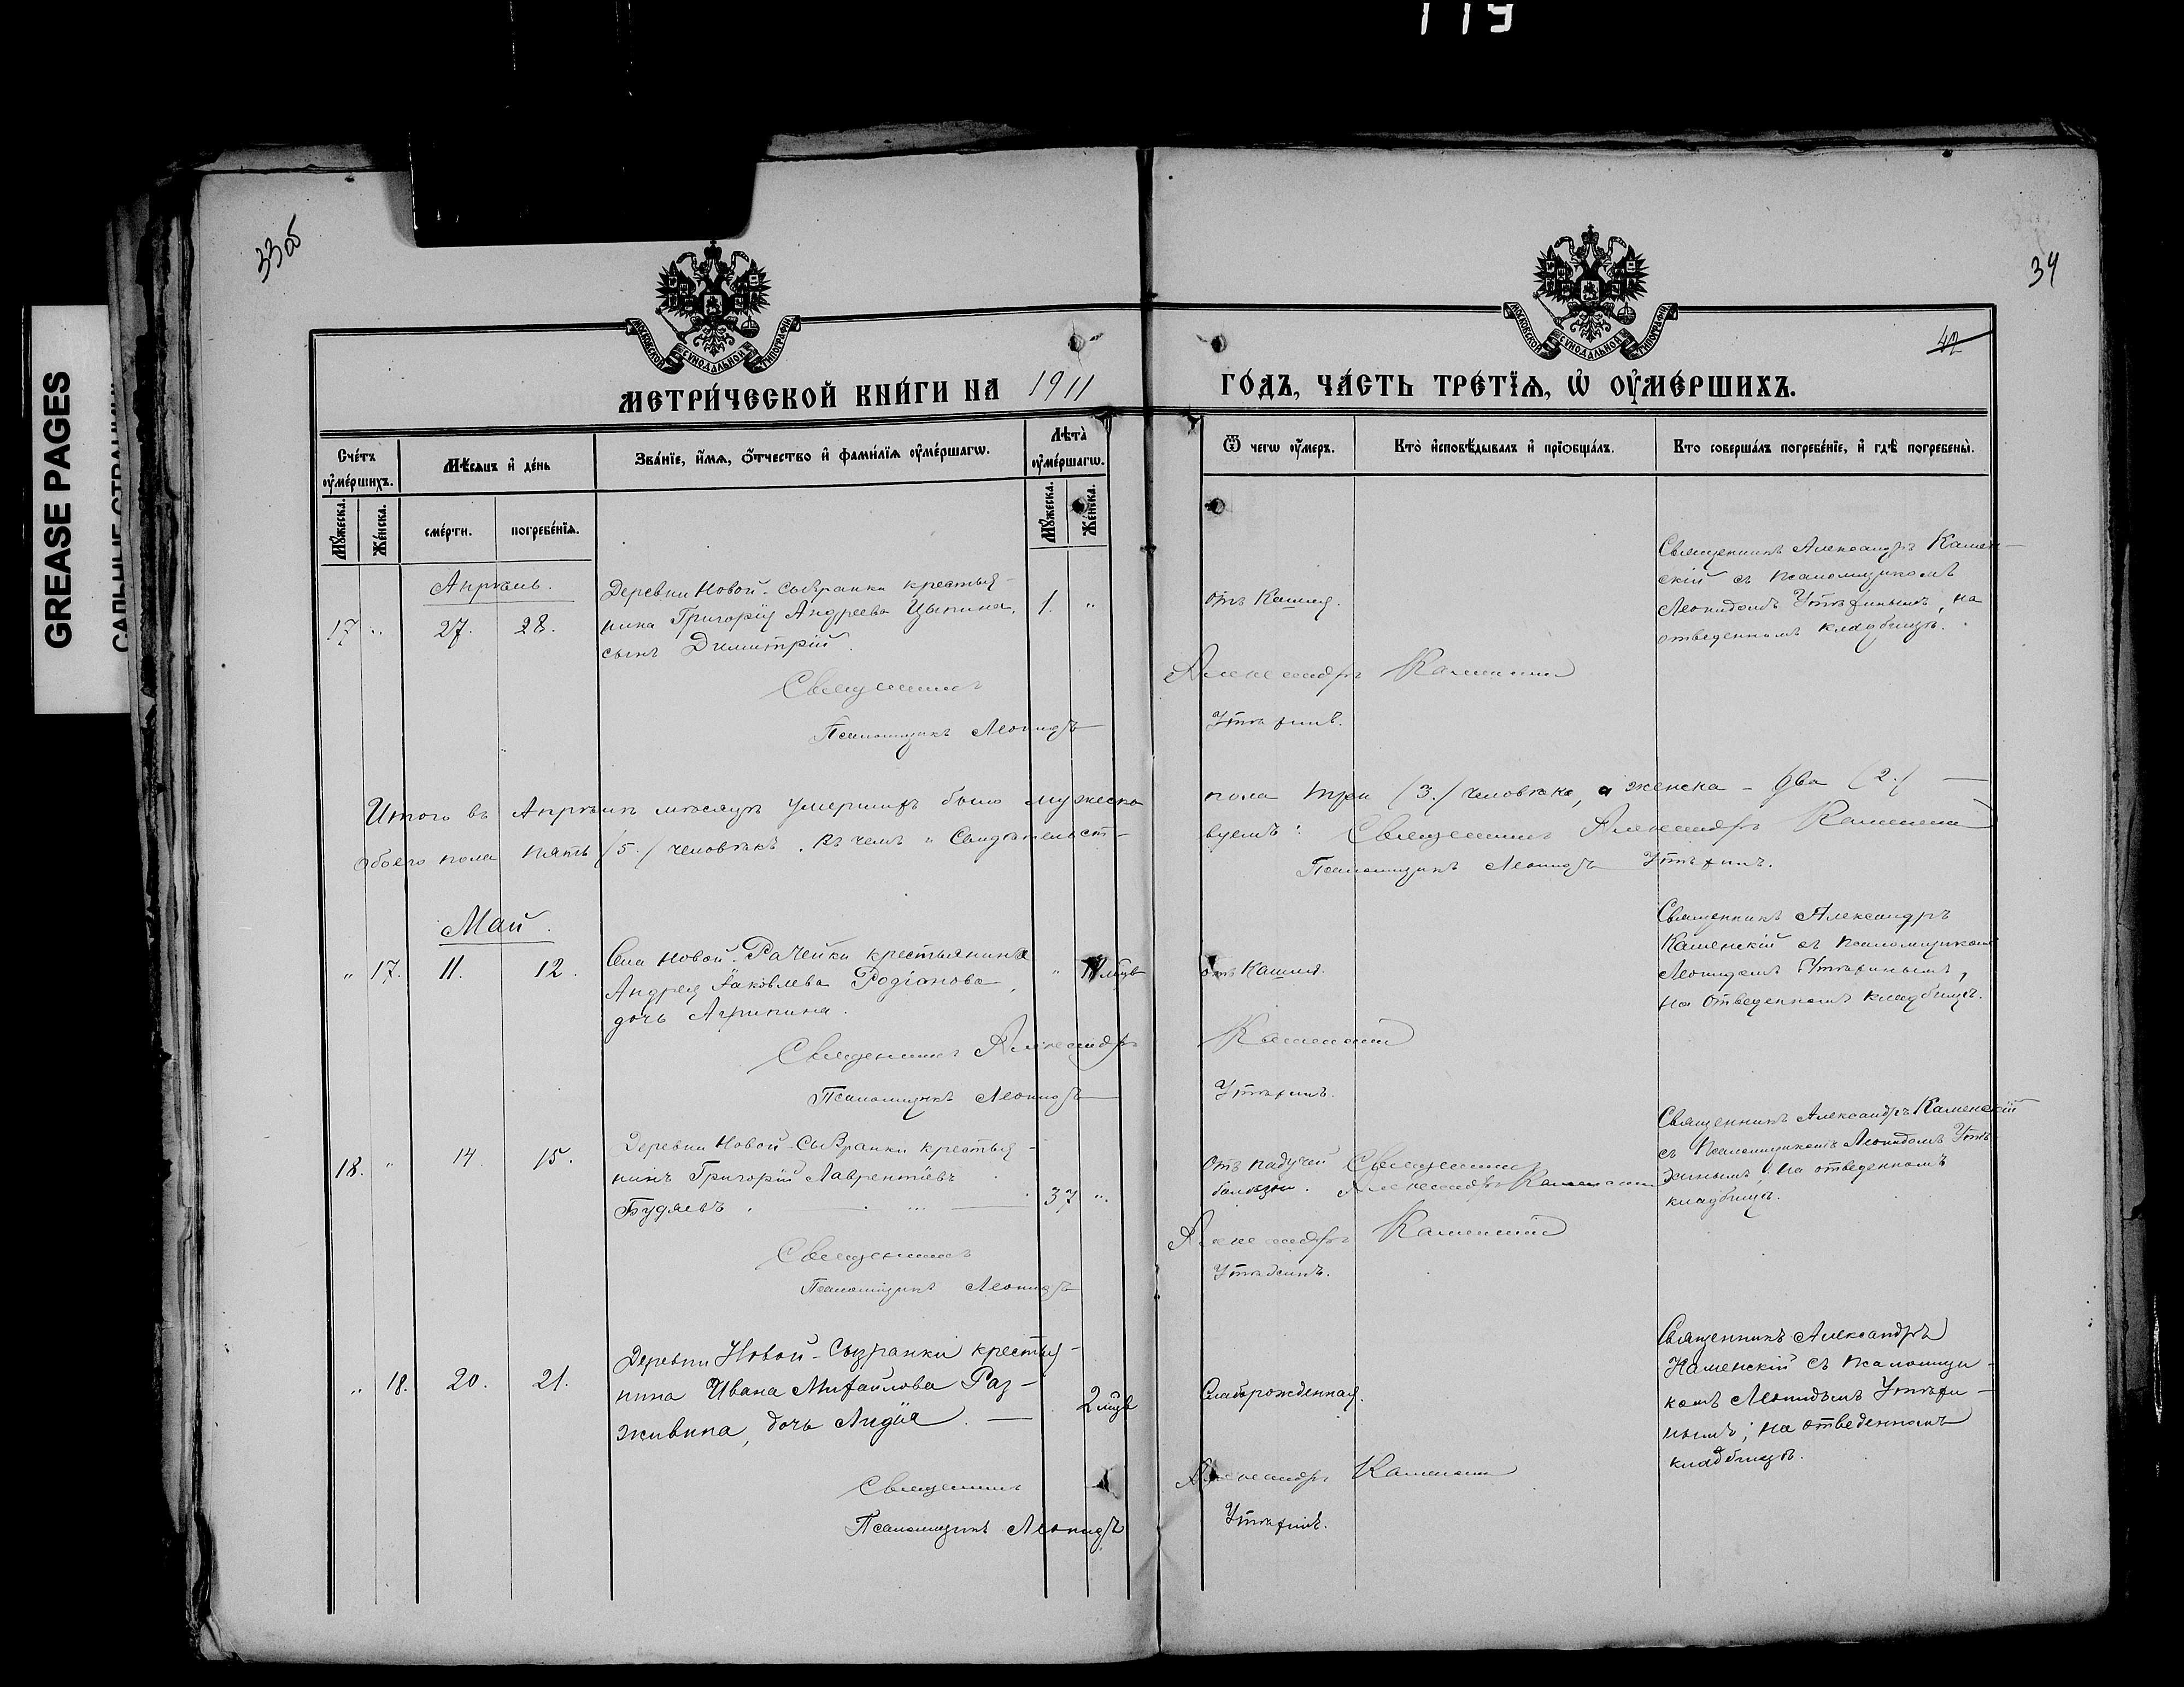 119
GREASE PAGES
33об
34
42
МОСКОВСКОЙ СѴНОДАЛЬНОЙ ТИПОГРАФІИ
МОСКОВСКОЙ СѴНОДАЛЬНОЙ ТИПОГРАФІИ
МЕТРИ́ЧЕСКОЙ КНИ́ГИ НА 1911 ГО́ДЪ, ЧА́СТЬ ТРЕ́ТЇѦ, Ѡ҆ ОУ҆МЕ́РШИХЪ.
Сче́тъ оу҆ме́ршихъ.
Мѣ́сяцъ и҆ де́нь
Зва́нїе, и҆́мѧ, ѻ҆́тчество и҆ фами́лїѧ оу҆ме́ршагѡ.
Лѣта̀ оу҆ме́ршагѡ.
Ѿ чегѡ оу҆́меръ.
Кто̀ и҆сповѣ́дывалъ и҆ прїѻбща́лъ.
Кто соверша́лъ погребе́нїе, и҆ гдѣ̀ погребены̀.
Мꙋ́жеска.
Же́нска.
сме́рти.
погребе́нїѧ.
Мꙋ́жеска.
Же́нска.
Апрѣль.
17 " 27. 28.
Деревни Новой-Сызранки крестья-
нина Григорія Андреева Цыпина,
сынъ Димитрій.
1. "
отъ Кашля.
Священникъ Александръ Камен-
скій съ псаломщикомъ
Леонидомъ Утѣхинымъ, на
отведенномъ кладбищѣ.
Священникъ Александръ Каменскій
Псаломщикъ Леонидъ Утѣхинъ.
Итого въ Апрѣлѣ мѣсяцѣ умершихъ было мужеска пола три (3.) человѣка, а женска - два (2.)
обоего пола пять (5.) человѣкъ. Въ чемъ и Свидѣтельст-
вуемъ: Священникъ Александръ Каменскій
Псаломщикъ Леонидъ Утѣхинъ.
Май.
" 17. 11. 12.
Села Новой-Рачейки крестьянина
Андрея Яковлева Родіонова,
дочь Агрипина.
"
отъ Кашля.
Священникъ Александръ
Каменскій съ псаломщикомъ
Леонидомъ Утѣхинымъ,
на отведенномъ кладбищѣ.
Священникъ Александръ Каменскій
Псаломщикъ Леонидъ Утѣхинъ.
18. " 14. 15.
Деревни Новой-Сызранки крестья-
нинъ Григорій Лаврентіевъ
Будяевъ.
37 ".
Отъ падучей
болѣзни.
Священникъ
Александръ Каменскій
Священникъ Александръ Каменскій
съ Псаломщикомъ Леонидомъ Утѣ-
хинымъ, на отведенномъ
кладбищѣ.
Священникъ Александръ Каменскій
Псаломщикъ Леонидъ Утѣхинъ.
" 18. 20. 21.
Деревни Новой-Сызранки крестья-
нина Ивана Михайлова Раз-
живина, дочь Лидія.
2 мцѣв
Слаборожденная.
Священникъ Александръ
Каменскій съ псаломщи-
комъ Леонидомъ Утѣхи-
нымъ; на отведенномъ
кладбищѣ.
Священникъ Александръ Каменскій
Псаломщикъ Леонидъ Утѣхинъ.